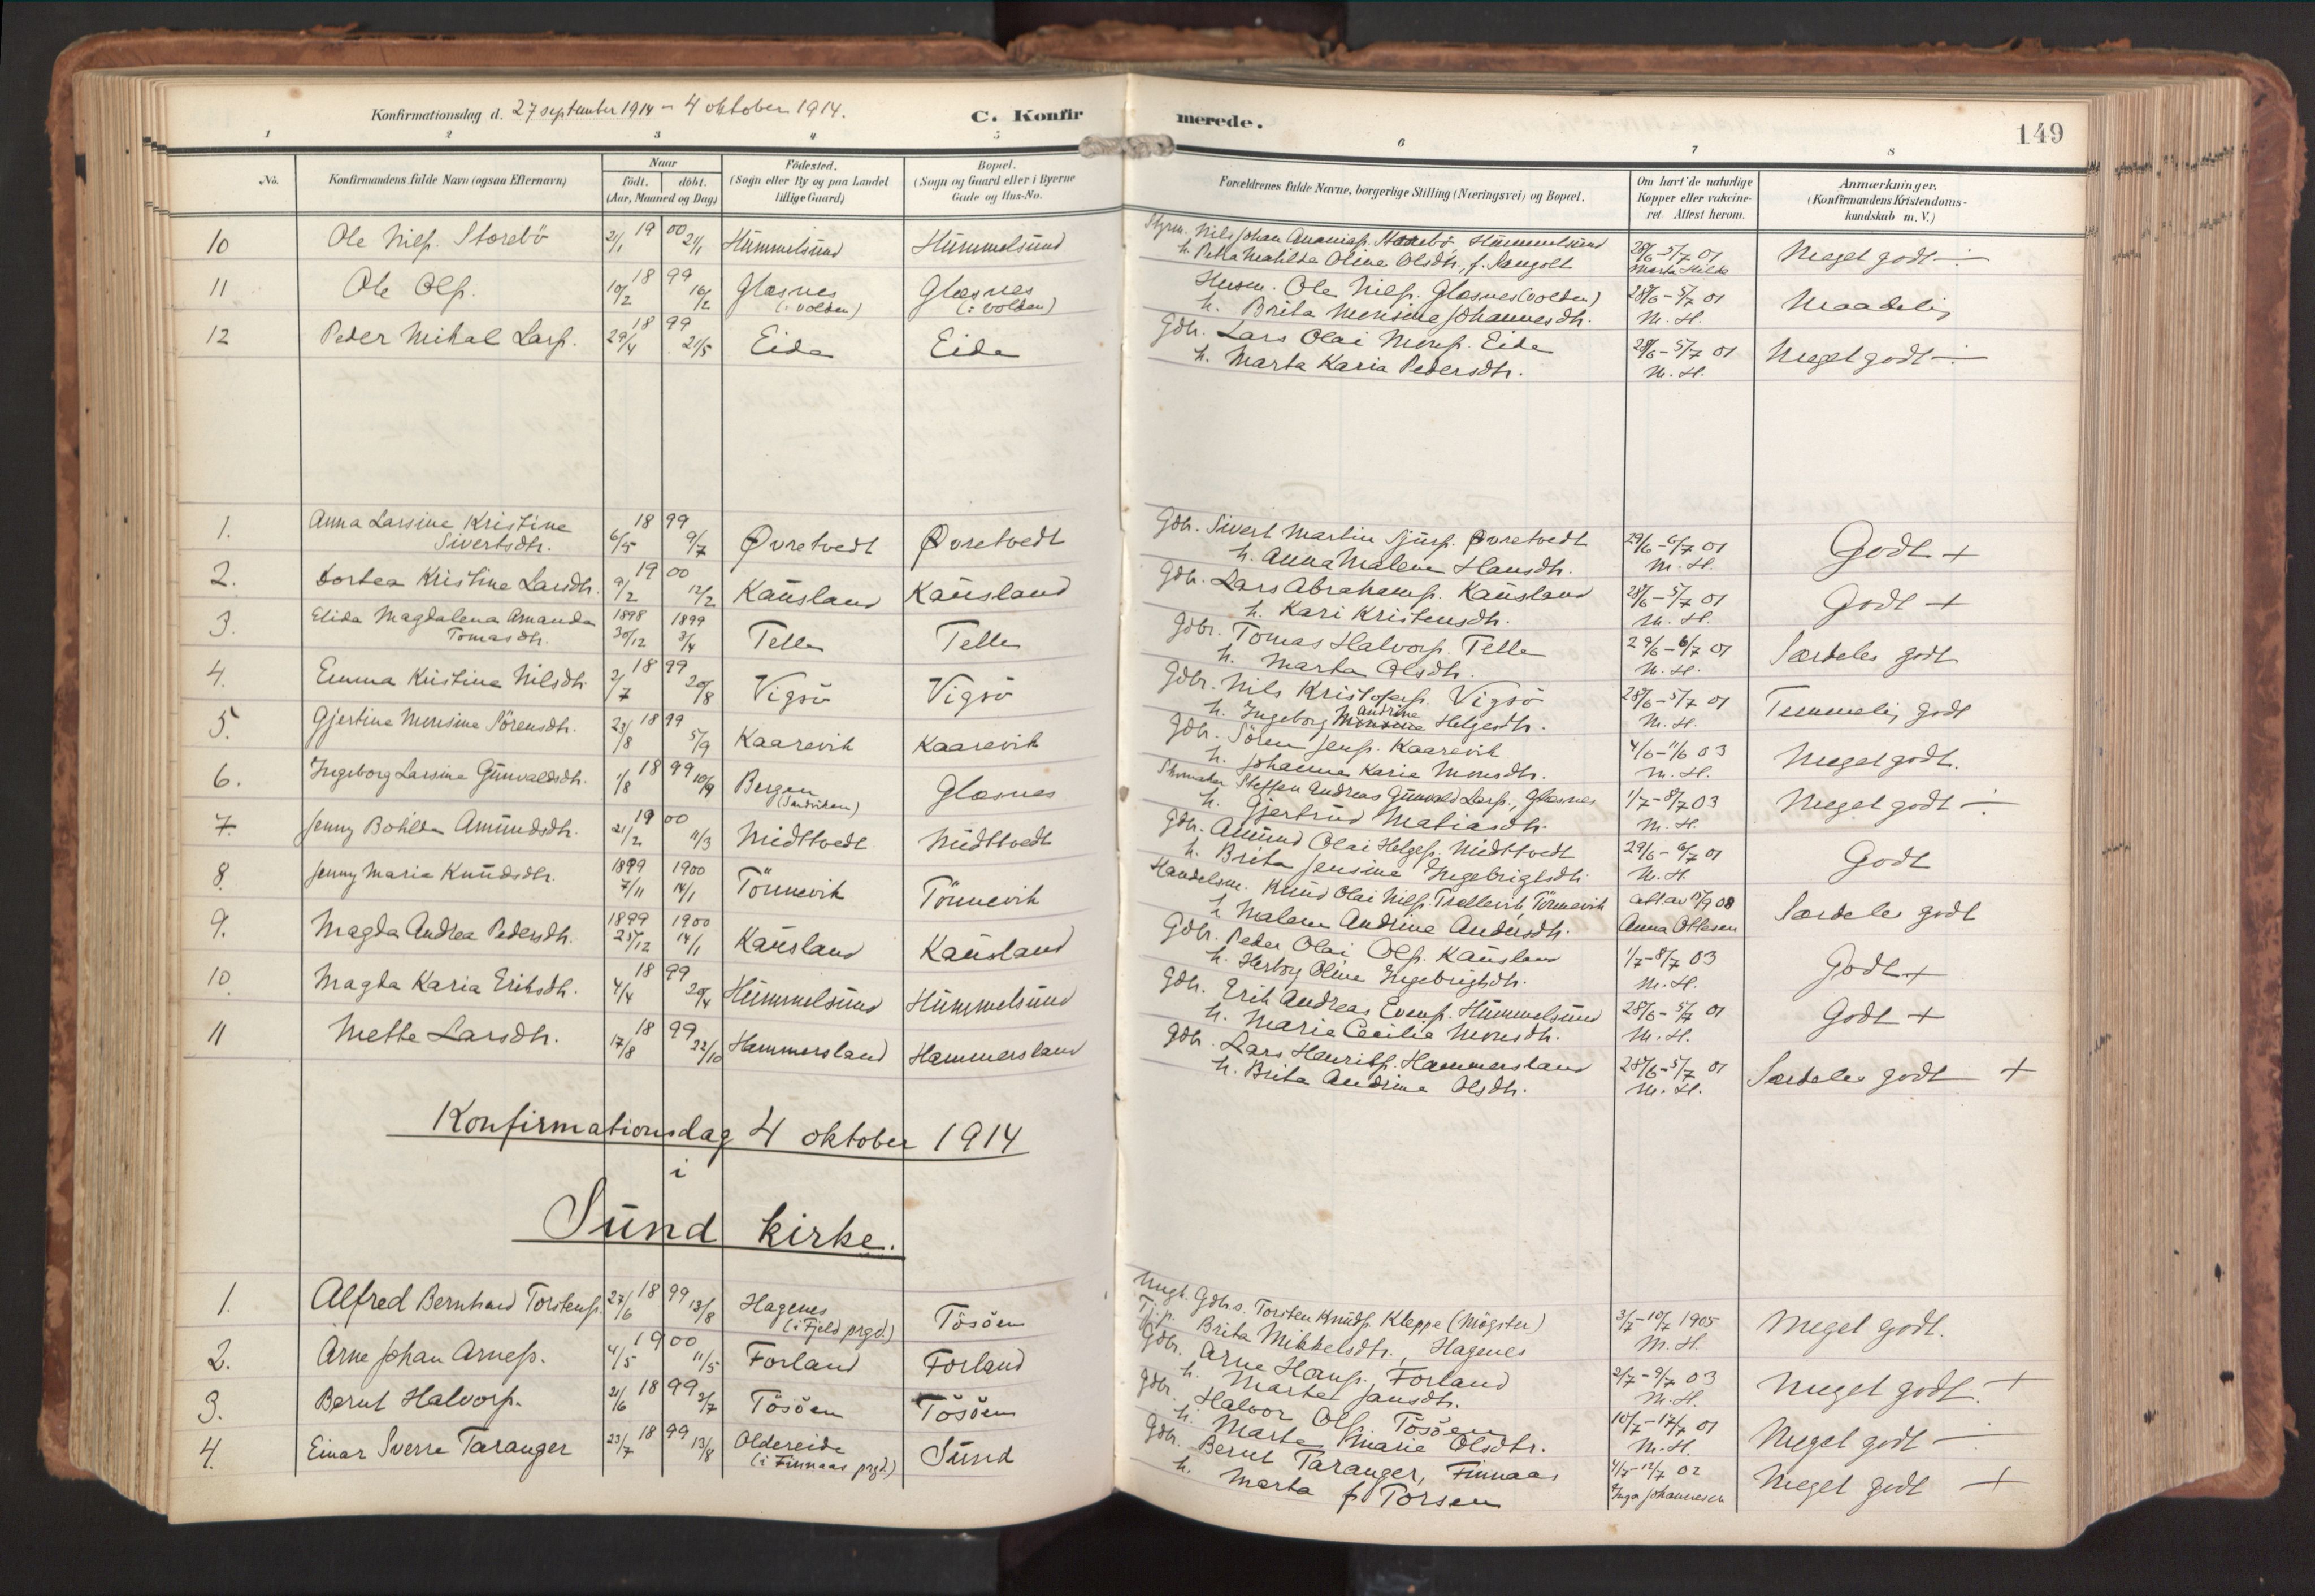 Konfirmationsdag d. 27 september 1914 – 4 oktober 1914.
C. Konfirmerede.
149
1 2 3 4 5 6 7 8
No.
Konfirmandens fulde Navn (ogsaa Efternavn)
Naar
født. døbt.
(Aar, Maaned og Dag)
Fødested.
(Sogn eller By og paa Landet
tillige Gaard)
Bopæl.
(Sogn og Gaard eller i Byerne
Gade og Hus-No.
Forældrenes fulde Navne, borgerlige Stilling (Næringsvei) og Bopæl.
Om havt de naturlige
Kopper eller vakcine-
ret. Attest herom.
Anmærkninger.
(Konfirmandens Kristendoms-
kundskab m. V.)
10 Ole Nilss. Storebö 21/1 1900 21/1 Hummelsund Hummelsund Styrm. Nils Johan Ananiass. Storebö Hummelsund 28/6–5/7 01 Meget godt ÷
h. Petra Matilda Olina Olsdtr., f. Tangolt
11 Ole Olss. 10/2 1899 16/2 Glæsnes Glæsnes Husm. Ole Nilss. Glæsnes (volden) 28/6–5/7 01 Maadelig
(: volden) (: volden) h. Brita Monsine Johannesdtr. M. H.
12 Peder Mikal Larss. 29/4 1899 21/5 Eide Eide Gbr. Lars Olai Monss. Eide 28/6–5/7 01 Meget godt ÷
h. Marta Karia Pedersdtr. M. H.
1. Anna Larsine Kristine 1899 Gbr. Sivert Martin Sjurs. Øvretvedt 29/6–6/7 01 Godt +
Sivertsdtr. 6/5 9/7 Øvretvedt Øvretvedt h. Anna Malene Hansdtr. M. H.
2. Dortea Kristine Larsdtr. 9/2 1900 12/2 Kausland Kausland Gbr. Lars Abrahams. Kausland 28/6–5/7 01 Godt +
h. Kari Kristensdtr. M. H.
3. Elida Magdalena Amanda 1898 1899 Gbr. Tomas Halvors. Telle 29/6–6/7 01 Særdeles godt
Tomasdtr. 30/12 3/4 Telle Telle h. Marta Olsdtr. M. H.
4. Emma Kristine Nilsdtr. 2/7 1899 20/8 Vigsö Vigsö Gbr. Nils Kristofers. Vigsö 28/6–5/7 01 Temmelig godt
h. Ingeborg Andrine Helgesdtr. M. H.
5. Gjertine Monsine Sörensdtr. 23/8 1899 5/9 Kaarevik Kaarevik Gbr. Sören Jenss. Kaarevik 4/6–11/6 03 Meget godt.
h. Johanna Karia Monsdtr. M. H.
6. Ingeborg Larsine Gunvaldsdtr. 1/8 1899 10/9 Bergen Glæsnes Skomaker Steffen Andreas Gunvald Larss., Glæsnes 1/7–8/7 03 Meget godt ÷
(Sandviken) h. Gjertrud Matiasdtr. M. H.
7 Jenny Bohilda Amundsdtr. 21/2 1900 11/3 Midttvedt Midttvedt Gbr. Amund Olai Helges. Midttvedt 29/6–6/7 01 Godt
h. Brita Jensine Ingebrigtsdtr. M. H.
8. Jenny Maria Knudsdtr. 1899 7/11 1900 14/1 Tönnevik Tönnevik Handelsm. Knud Olai Nilss. Trellevik, Tönnevik Særdeles godt
h. Malene Andrine Andersdtr. Anna Ottesen
9. Magda Andrea Pedersdtr. 1899 25/12 1900 14/1 Kausland Kausland Gbr. Peder Olai Olss. Kausland 1/7–8/7 03 Godt +
h. Herborg Oline Ingebrigtsdtr. M. H.
10 Magda Karia Eriksdtr. 4/4 1899 20/4 Hummelsund Hummelsund Gbr. Erik Andreas Evens. Hummelsund 28/6–5/7 01 Godt +
h. Marie Cecilie Monsdtr. M. H.
11 Mette Larsdtr. 17/8 1899 22/10 Hammersland Hammersland Gbr. Lars Henriks. Hammersland 28/6–5/7 01 Særdeles godt +
h. Brita Andrine Olsdtr. M. H.
Konfirmationsdag 4 oktober 1914
i
Sund kirke.
1. Alfred Bernhard Torstens. 27/6 1899 13/8 Hagenes Tösöen Ungk. Gbrs. Torsten Knuds. Kleppe (Mögster) 3/7–10/7 1905 Meget godt.
(i Fjeld prgd.) Tj.p. Brita Mikkelsdtr., Hagenes M. H.
2. Arne Johan Arness. 4/5 1900 11/5 Forland Forland Gbr. Arne Hanss. Forland 2/7–9/7 03 Meget godt. +
h. Marta Jansdtr. M. H.
3. Bernt Halvors. 21/6 1899 2/7 Tösöen Tösöen Gbr. Halvor Olss. Tösöen 10/7–17/7 01 Meget godt ÷
h. Marta Marie Olsdtr. M. H.
4. Einar Sverre Taranger 23/7 1899 13/8 Oldereide Sund Gbr. Bernt Taranger, Finnaas 4/7–12/7 02 Meget godt +
(i Finnaas prgd.) h. Marta f. Torsen Inga Johannesen